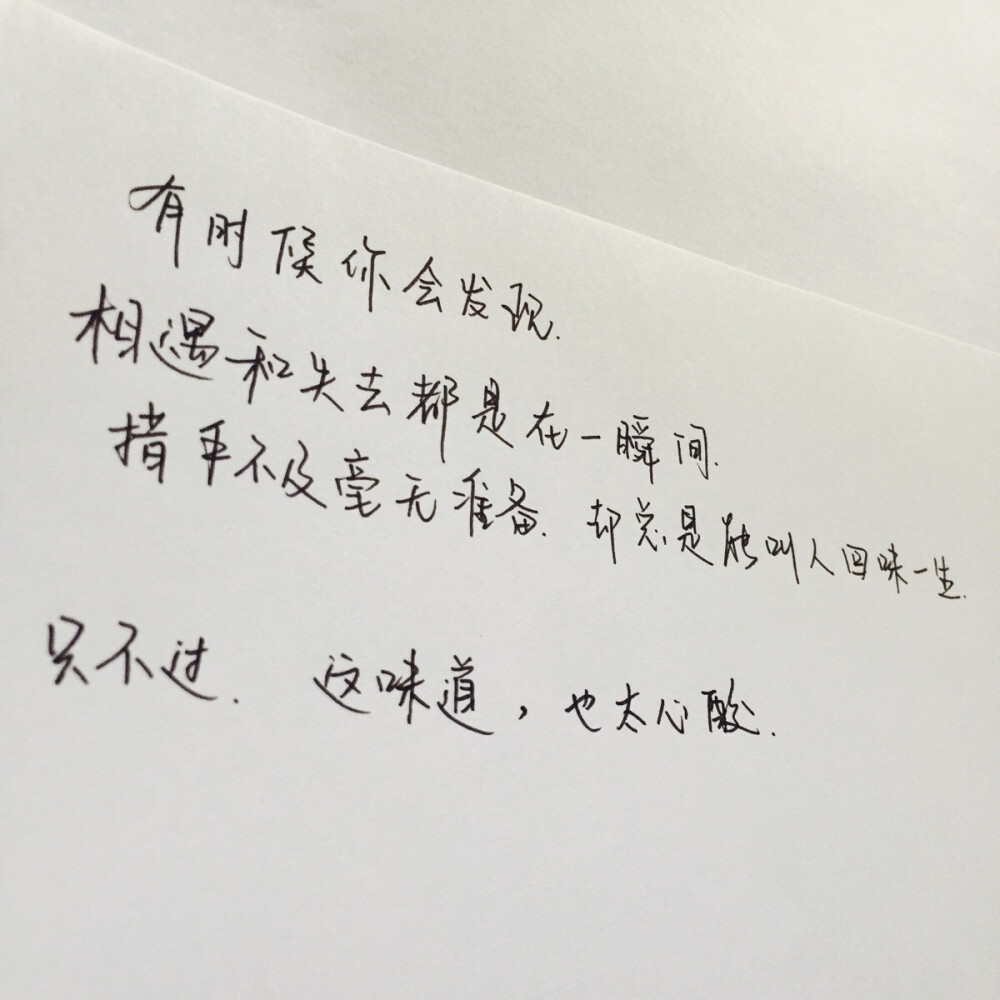 有时候你会发现.
相遇和失去都是在一瞬间.
措手不及毫无准备.却总是能叫人回味一生.
只不过. 这味道，也太心酸.